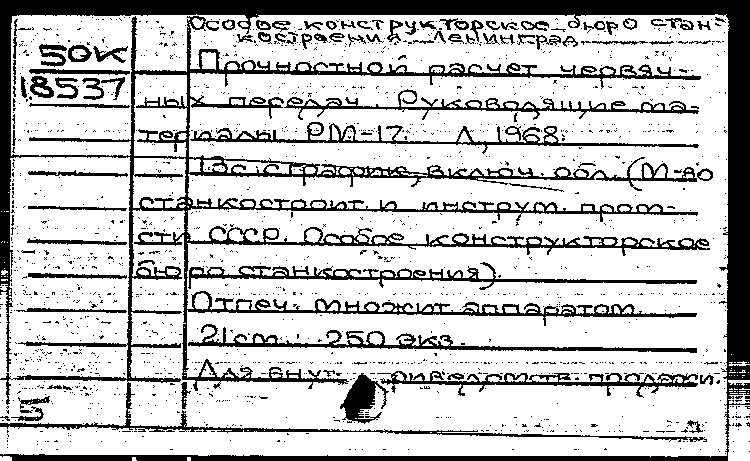 Особое конструкторское бюро стан-
костроения. Ленинград
50К
Прочностной расчет червяч-
18537
ных передач. Руководящие ма-
териалы РМ-17. Л., 1968.
13с. с график., включ. обл. (М-во
станкостроит. и инструм. пром-
сти СССР. Особое конструкторское
бюро станкостроения).
Отпеч. множит. аппаратом.
21 см. 250 экз.
Для внут. продажи.
5